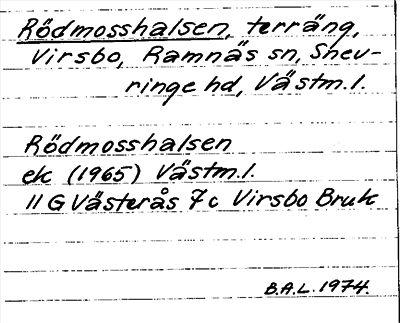 Rödmosshalsen, terräng,
Virsbo, Ramnäs sn, Snev-
ringe hd, Västm.l.
Rödmosshalsen
ek (1965) Västm.l.
11 G Västerås 7 c Virsbo Bruk
B.A.L. 1974.